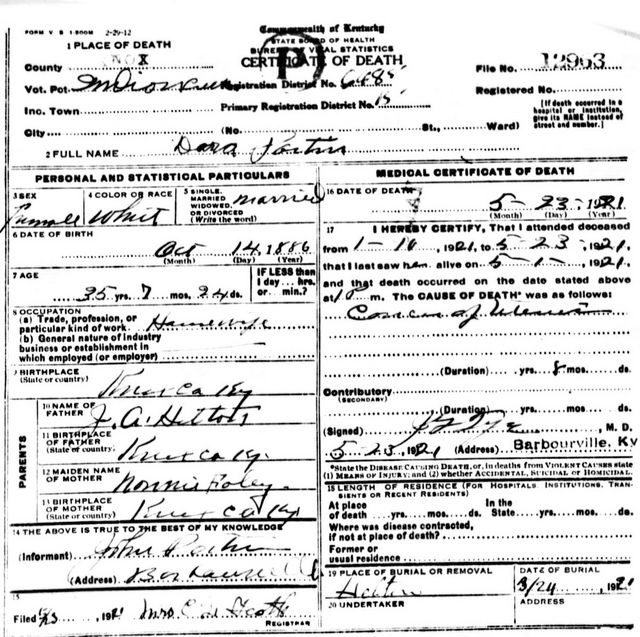 FORM V S 1-500M 2-29-12
Commonwealth of Kentucky
STATE BOARD OF HEALTH
BUREAU OF VITAL STATISTICS
CERTIFICATE OF DEATH
1 PLACE OF DEATH
County KNOX
File No. 12963
Vot. Pct. Registration District No.
Registered No.
Inc. Town Primary Registration District No.
[If death occurred in a hospital or institution, give its NAME instead of street and number.]
City (No. St., Ward)
2 FULL NAME Dora Partin
PERSONAL AND STATISTICAL PARTICULARS
3 SEX
4 COLOR OR RACE
5 SINGLE, MARRIED WIDOWED, OR DIVORCED (Write the word) married
Female Whit
6 DATE OF BIRTH
Oct 14, 1886
(Month) (Day) (Year)
7 AGE
IF LESS than 1 day ... hrs or ... min.?
35 yrs. 7 mos. 24 ds.
8 OCCUPATION
(a) Trade, profession, or particular kind of work Housewife
(b) General nature of industry business or establishment in which employed (or employer)
9 BIRTHPLACE
(State or country) Knox Co Ky
PARENTS
10 NAME OF FATHER J. A. Hilton
11 BIRTHPLACE OF FATHER (State or country) Knox Co Ky.
12 MAIDEN NAME OF MOTHER Foley
13 BIRTHPLACE OF MOTHER (State or country) Knox Co Ky
14 THE ABOVE IS TRUE TO THE BEST OF MY KNOWLEDGE
(Informant) John Partin
(Address) Barbourville
15
Filed 1921 Mrs
REGISTRAR
MEDICAL CERTIFICATE OF DEATH
16 DATE OF DEATH
5-23-1921
(Month) (Day) (Year)
17 I HEREBY CERTIFY, That I attended deceased
from 1-10, 1921, to 5-23-, 1921,
that I last saw her alive on 5-1-, 1921,
and that death occurred on the date stated above
at 10 m. The CAUSE OF DEATH* was as follows:
Cancer of Uterus
(Duration) yrs. 8 mos. ds.
Contributory
(SECONDARY)
(Duration) yrs. mos. ds.
(Signed) M. D.
5-23, 1921 (Address) Barbourville, Ky
*State the DISEASE CAUSING DEATH, or, in deaths from VIOLENT CAUSES state
(1) MEANS OF INJURY; and (2) whether ACCIDENTAL, SUICIDAL or HOMICIDAL.
18 LENGTH OF RESIDENCE (FOR HOSPITALS, INSTITUTIONS, TRANSIENTS OR RECENT RESIDENTS)
At place of death yrs. mos. ds. In the State yrs. mos. ds.
Where was disease contracted, if not at place of death?
Former or usual residence
19 PLACE OF BURIAL OR REMOVAL
DATE OF BURIAL
3/24, 1921
20 UNDERTAKER
ADDRESS